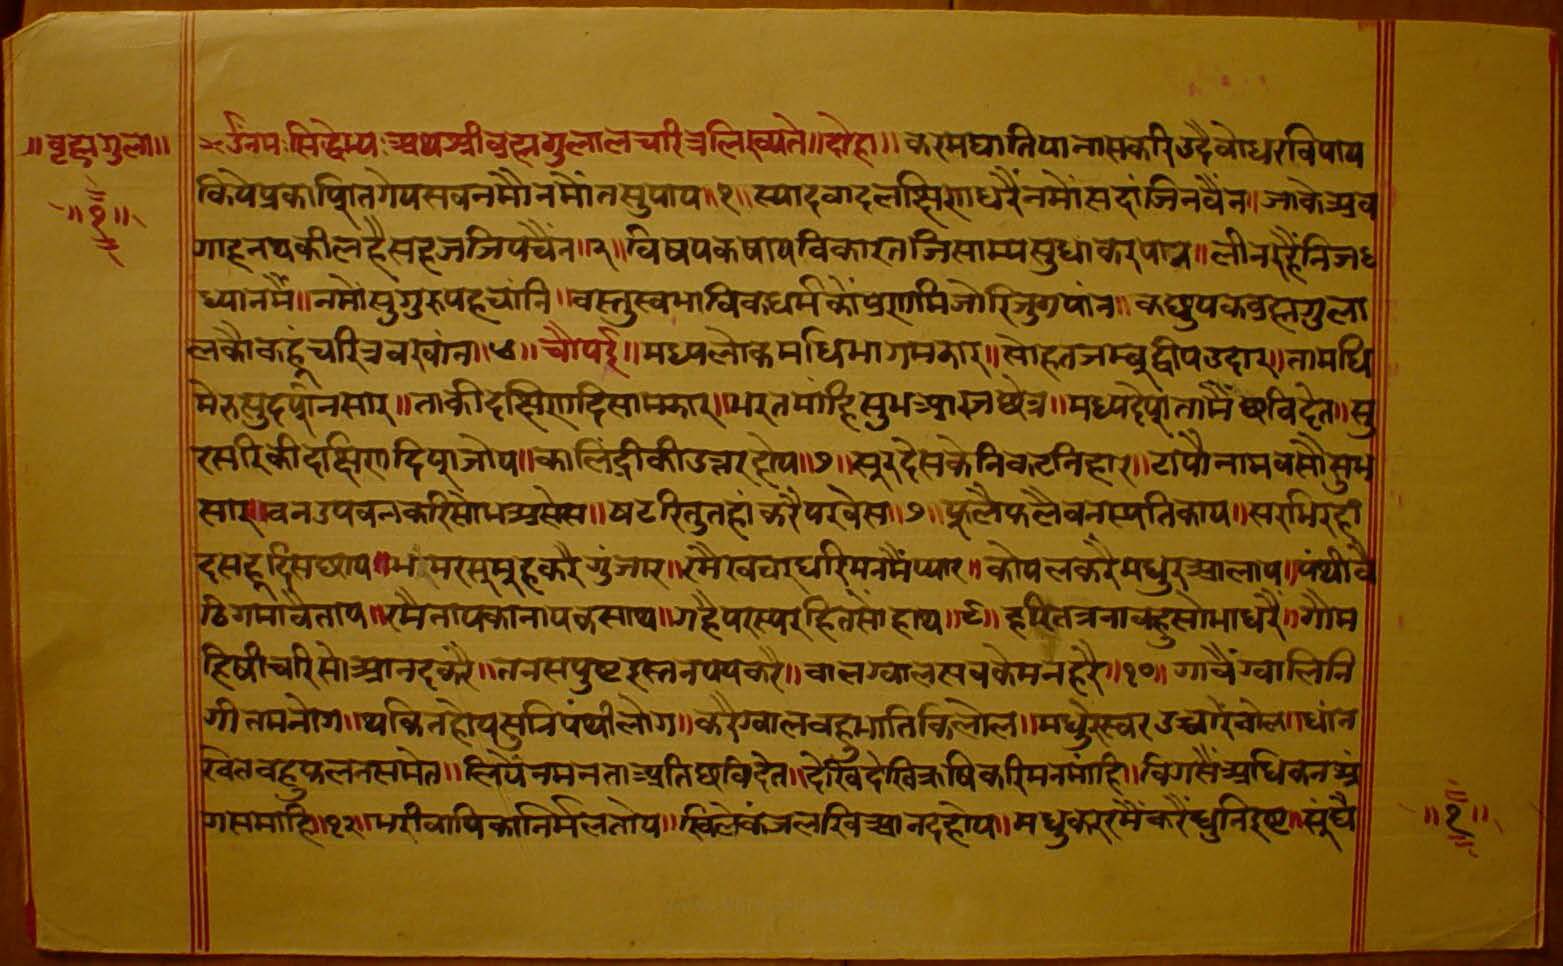 ॥वृह्मगुला॥
॥१॥
ॐनमःसिद्धेभ्यःअथश्रीवृह्मगुलालचरित्रलिख्यते॥दोहा॥करमघातियानासकरिउदैवोधरविपाय
कियेप्रकाशितगेयसवनमौनमौंतसुपाय॥१॥स्यादवादलक्षिणधरैंनमौंसदांजिनवैंन॥जाकेअव
गाहनथकीलहैसहजजियचैंन॥२॥विषयकषायविकारतजिसाम्यसुधाकरपान॥लीनरहैंनिजध
ध्यानमैं॥नमोंसुगुरुपहचांनि॥वस्तुस्वभाविकधर्मकौंप्रणमिजोरिजुगपांन॥कछुयकवृह्मगुला
लकौकहूंचरित्रवखांन॥४॥चौपई॥मध्यलोकमधिभागमझार॥सोहतजम्बुद्वीपउदार॥तामधि
मेरुसुदर्शनसार॥ताकीदक्षिणदिसामझार॥भरतमांहिसुभआरजछेत्र॥मध्यदेशतामैंछविदेत॥सु
रसरिकीदक्षिणदिशजोय॥कालिंद्रीकीउत्तरहोय॥७॥सूरदेसकेनिकटनिहार॥टांपौनामवसौसुभ
सार॥वनउपवनकरिसोभअसेस॥षटरितुतहांकरैंपरवेस॥७॥फुलैफलैवनस्पतिकाय॥सरभिरही
दसहूदिसछाय॥भंमरसमूहकरैगुंजार॥रमैखचरधरिमनमैंप्यार॥कोयलकरैमधुरआलाप॥पंथीवै
ठिगमावैताप॥रमैनायकानायकसाथ॥गहैपरस्परहितसोंहाथ॥९॥हरितत्रनावहुसोभाधरैं॥गौम
हिषीचरिसोआनदकरैं॥तनसपुष्टस्तनपयकरै॥वालग्वालसवकेमनहरै॥१०॥गावैंग्वालिनि
गीतमनोग॥थकितहोयसुनिपंथीलोग॥करैग्वालवहुभातिकिलोल॥मधुरस्वरउच्चारैंवोल॥धांन
खेतवहुफलनसमेत॥लियेंनमनताअतिछविदेत॥देखिदेखिक्रषिकरिमनमांहि॥विगसैंअधिकनअं
गसमाहि॥१२॥भरीवापिकानिर्मलतोय॥खिलेकंजलखिआनदहोय॥मधुकररमैंकरैंधुनिइष्ट॥सूंघै
॥१॥